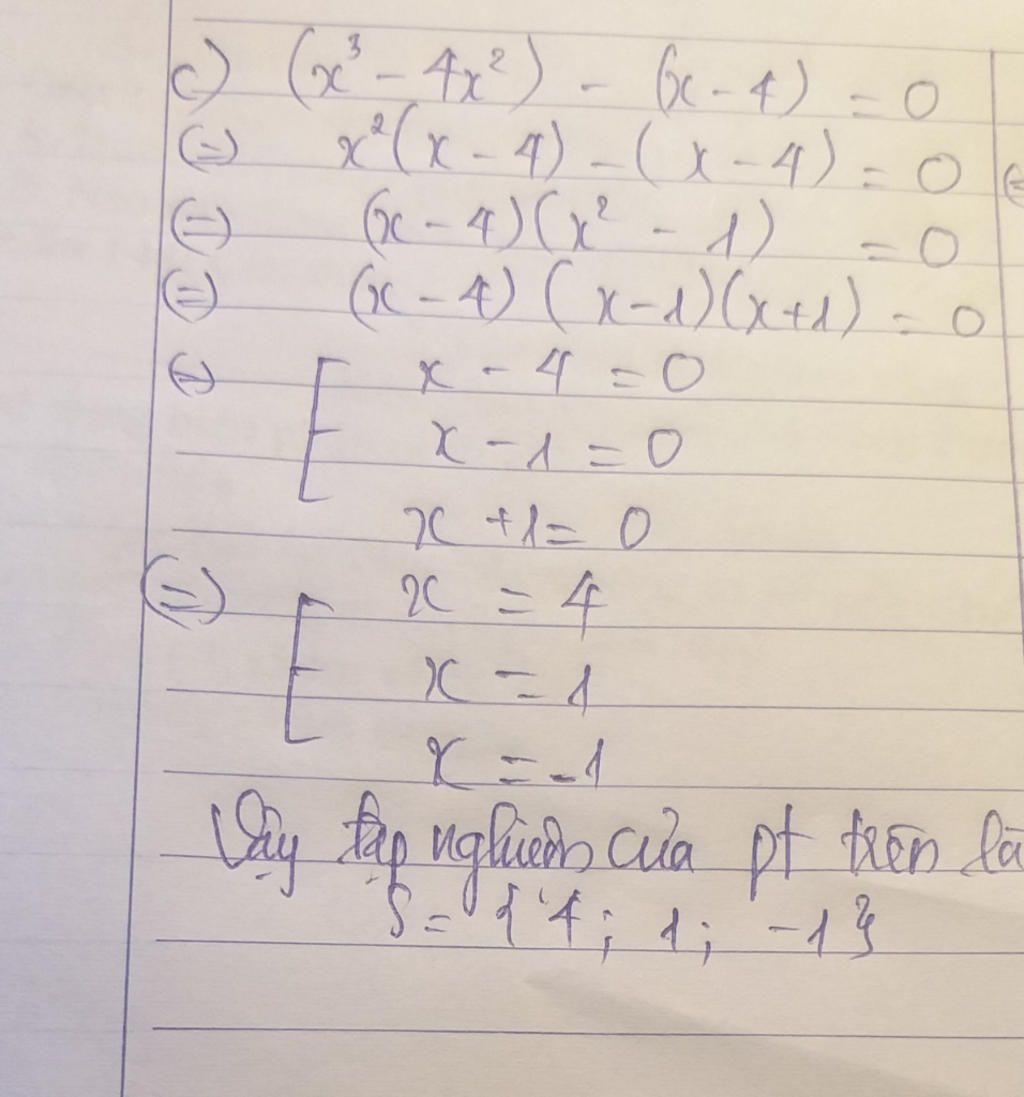 c) (x³ - 4x²) - (x - 4) = 0
(=) x²(x - 4) - (x - 4) = 0
(=) (x - 4)(x² - 1) = 0
(=) (x - 4)(x-1)(x+1) = 0
(=) [ x - 4 = 0
x - 1 = 0
x + 1 = 0
(=) [ x = 4
x = 1
x = -1
Vậy tập nghiệm của pt trên là
S = {4; 1; -1}